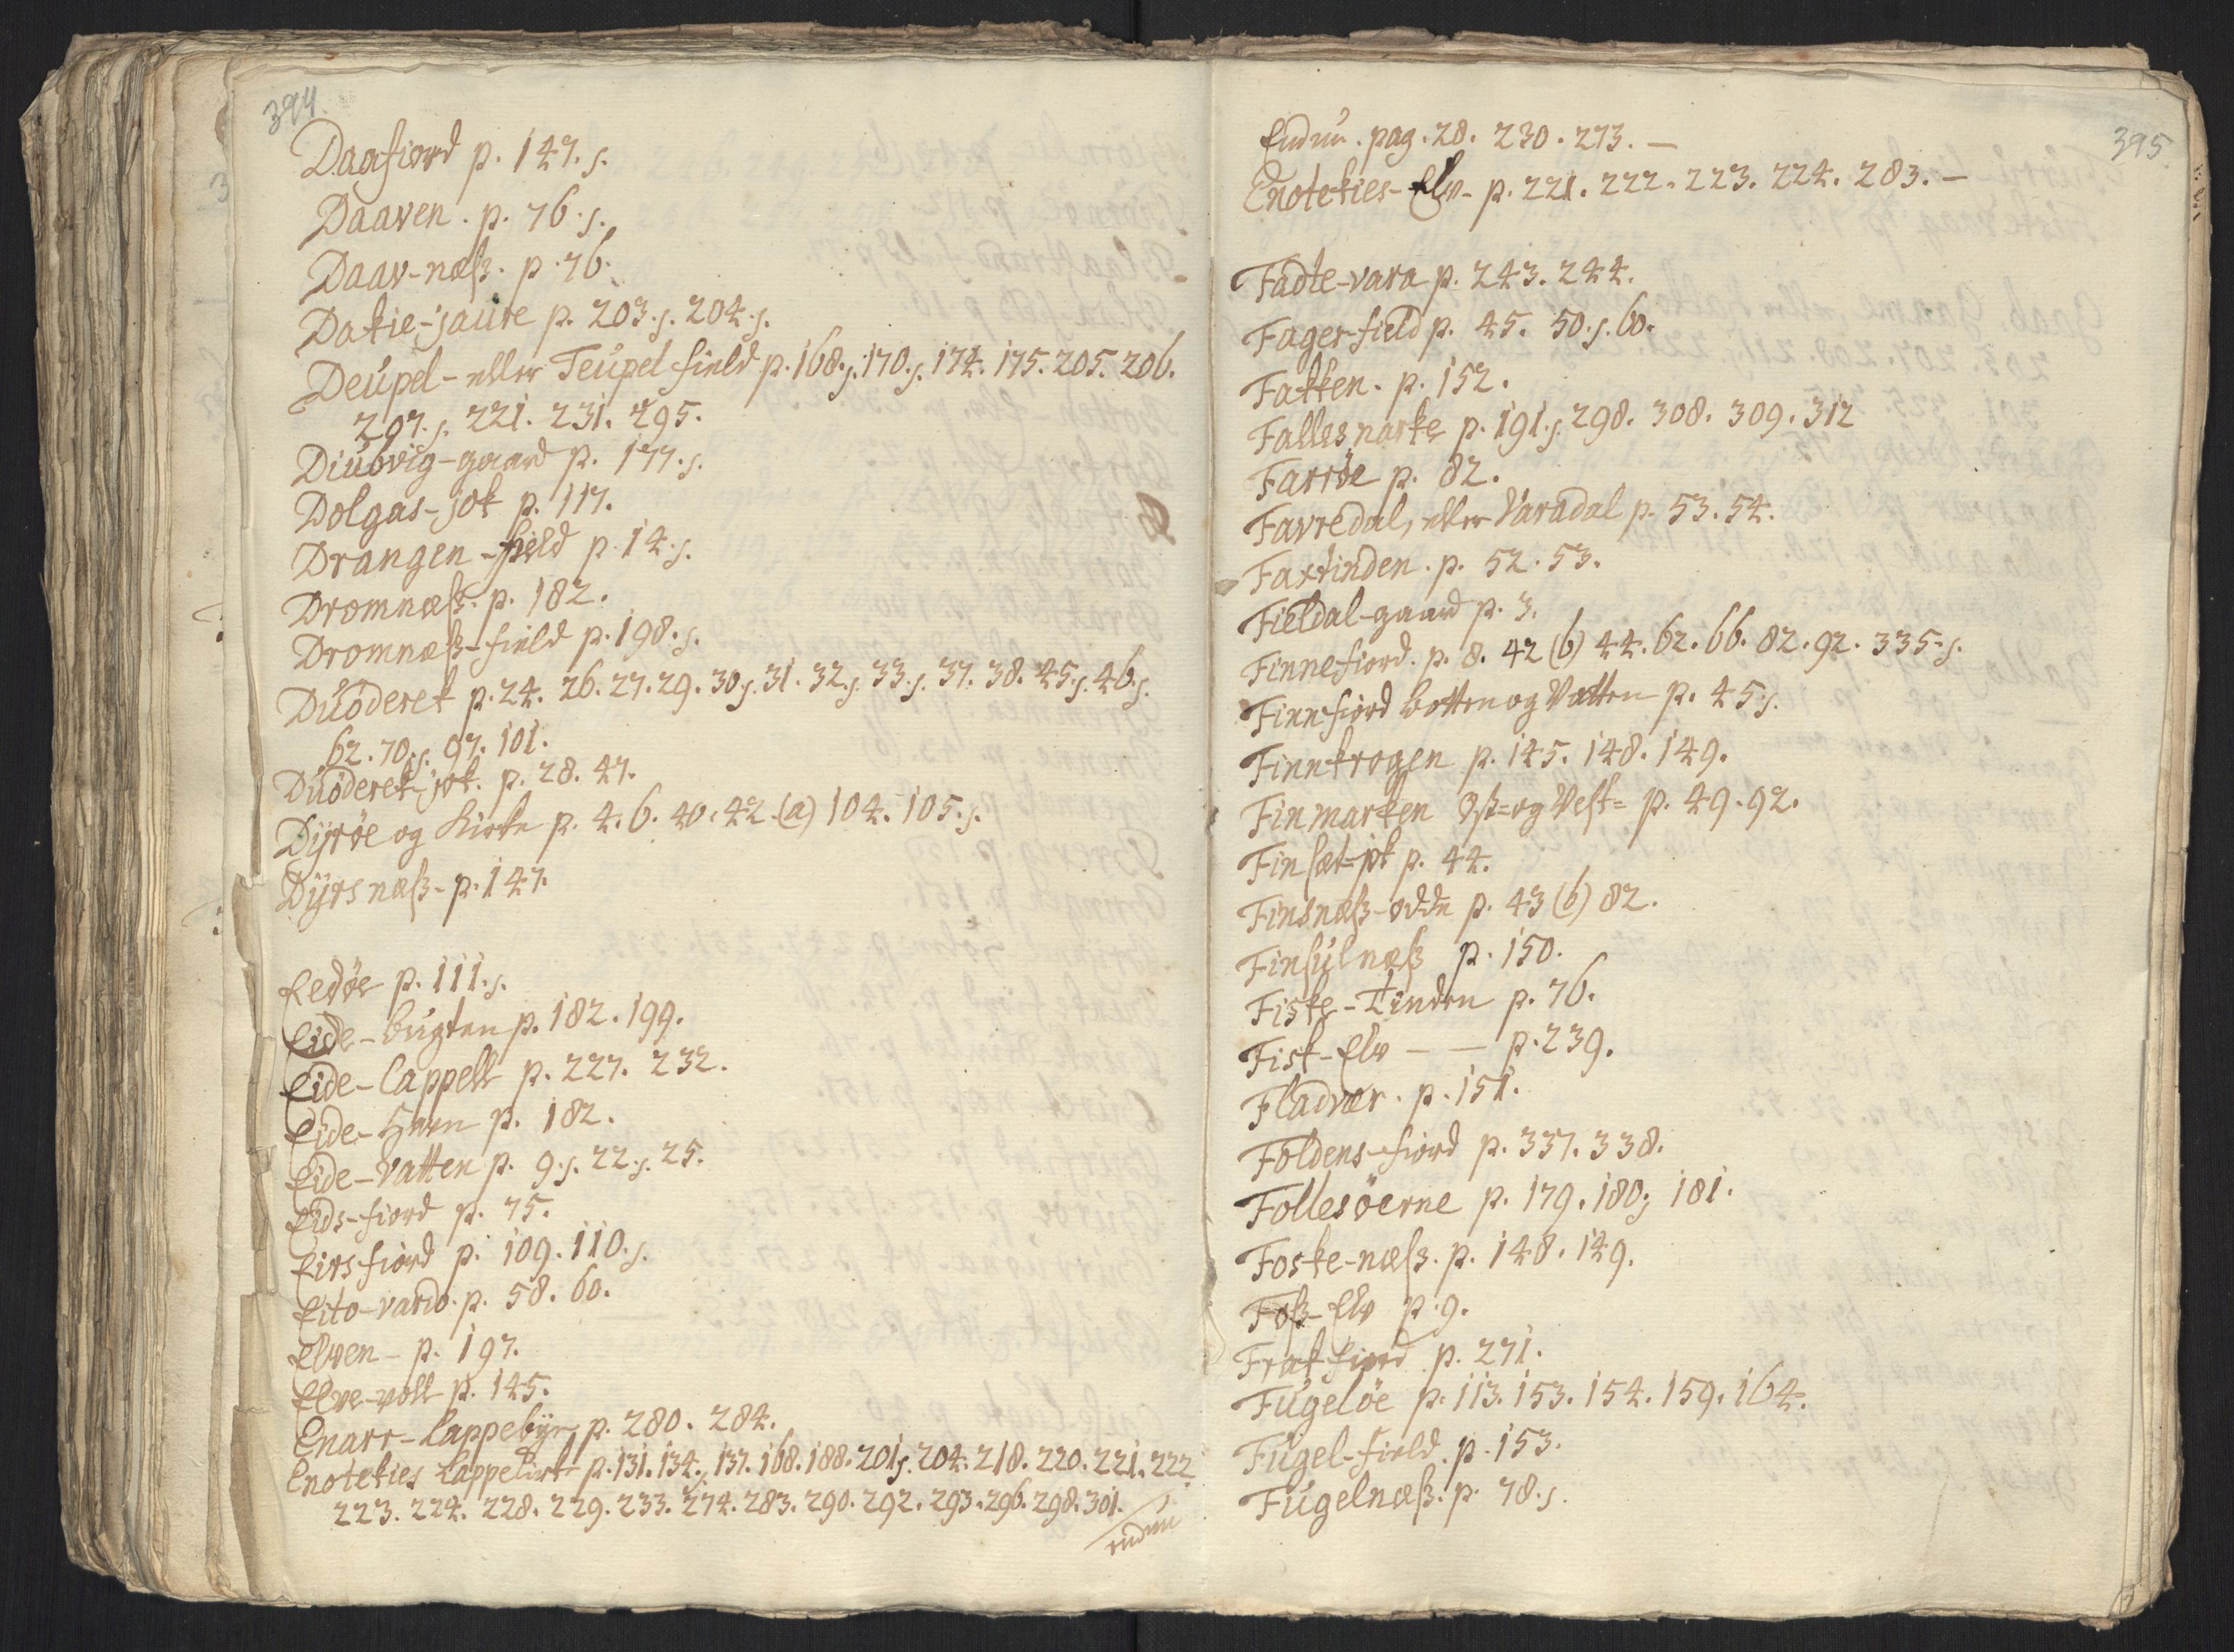 394.
Daafiord p. 147. s.
Daaven. p. 76. s.
Daav-næß. p. 76.
Dakie-jaure p. 203. s. 204. s.
Deupel- eller Teupel field p. 168. s. 170. s. 174. 175. 205. 206.
207. s. 221. 231. 295.
Diubvig-gaard p. 177. s.
Dolgas-jok p. 117.
Drangen-field p. 14. s.
Dromnæß. p. 182.
Dromnæß-field p. 198. s.
Duoderek p. 24. 26. 27. 29. 30. s. 31. 32. s. 33. s. 37. 38. 45. s. 46. s.
62. 70. s. 97. 101.
Duoderek-jok. p. 28. 47.
Dyrøe og Kirke p. 4. 6. 40. 42 (a) 104. 105. s.
Dyrsnæß- p. 147.
Eedøe p. 111. s.
Eide-bugten p. 182. 199.
Eide-Cappell p. 227. 232.
Eide-Havn p. 182.
Eide-Vatten p. 9. s. 22. s. 25.
Eids-fiord p. 75.
Eirsfiord p. 109. 110. s.
Eito-vardo. p. 58. 60.
Elven- p. 197.
Elve-voll p. 145.
Enarr-Lappebye p. 280. 284.
Enotekies Lappekirke p. 131. 134. 137. 168. 188. 201. s. 204. 218. 220. 221. 222
223. 224. 228. 229. 233. 274. 283. 290. 292. 293. 296. 298. 301.
endnu
395
Endnu. pag. 28. 230. 273. —
Enotekies-Elv- p. 221. 222. 223. 224. 283. —
Fadte-vara p. 243. 244.
Fager-field p. 45. 50. s. 60.
Fakken. p. 152.
Fallesnarke p. 191. s. 298. 308. 309. 312
Farrøe p. 82.
Favredal, eller Varadal p. 53. 54.
Faxtinden. p. 52. 53.
Fieldal-gaard p. 3.
Finnefiord. p. 8. 42 (b) 44. 62. 66. 82. 92. 335. s.
Finnfiord botten og Vatten p. 45. s.
Finnkrogen p. 145. 148. 149.
Finmarken Øst= og Vest= p. 49. 92.
Finsæt-jok p. 44.
Finsnæß-odde p. 43 (b) 82.
Finsulnæß p. 150.
Fiske-Tinden p. 76.
Fisk-Elv — — p. 239.
Fladvær. p. 151.
Foldens-fiord p. 337. 338.
Follesöerne p. 179. 180; 181.
Foske-næß. p. 148. 149.
Foß-Elv p. 9.
Frakfiord p. 271.
Fugelöe p. 113. 153. 154. 159. 164.
Fugel-field. p. 153.
Fugelnæß. p. 78. s.